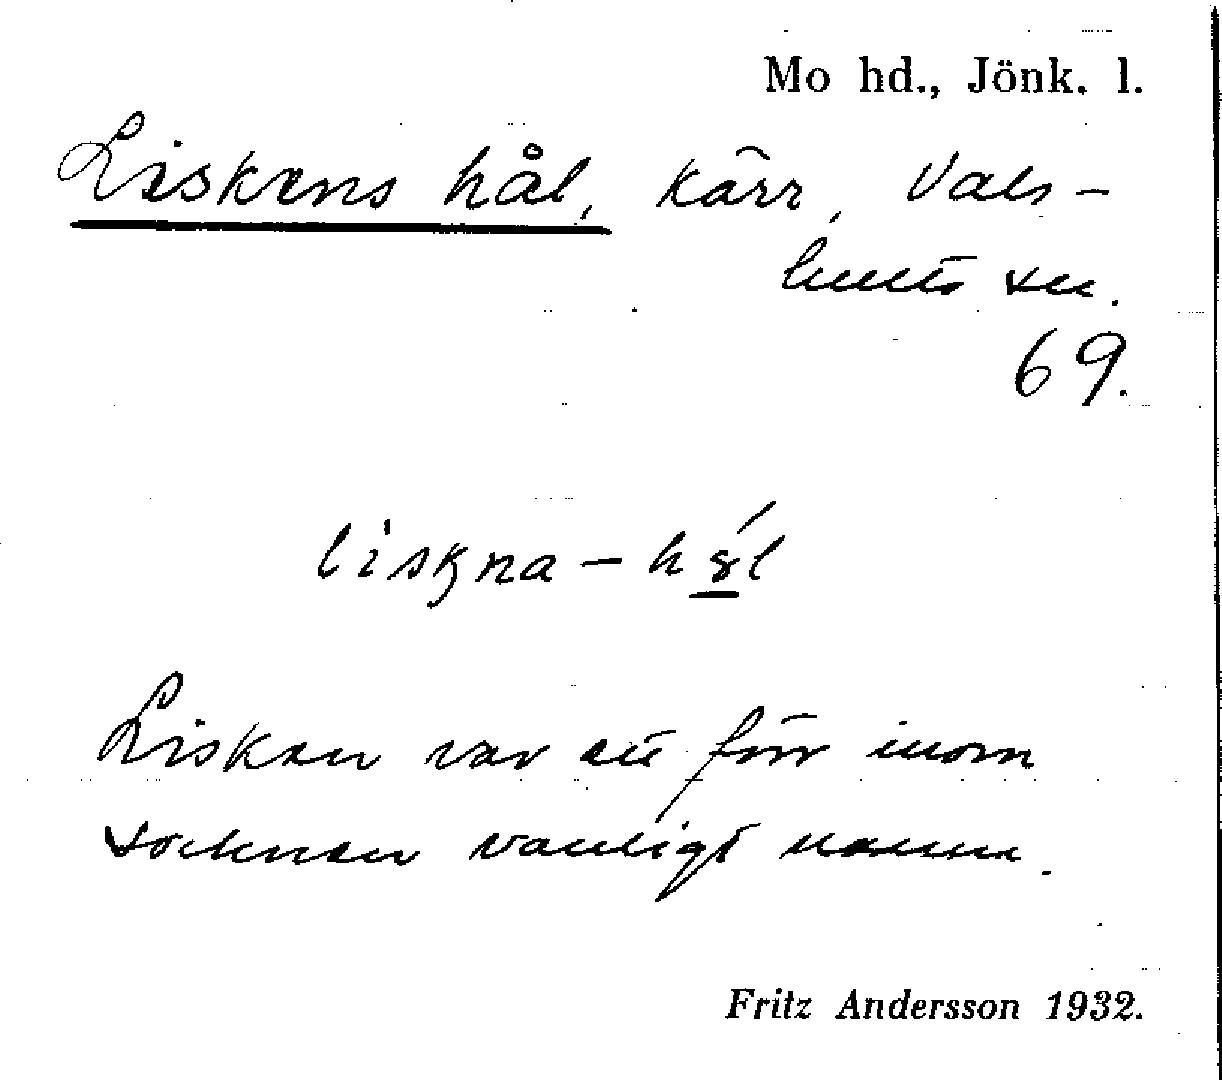 Mo hd., Jönk. l.
Liskens hål, kärr, Vals-
hult sn.
69.
liskna-hål
Liskan var ett förr inom
socknen vanligt namn.
Fritz Andersson 1932.